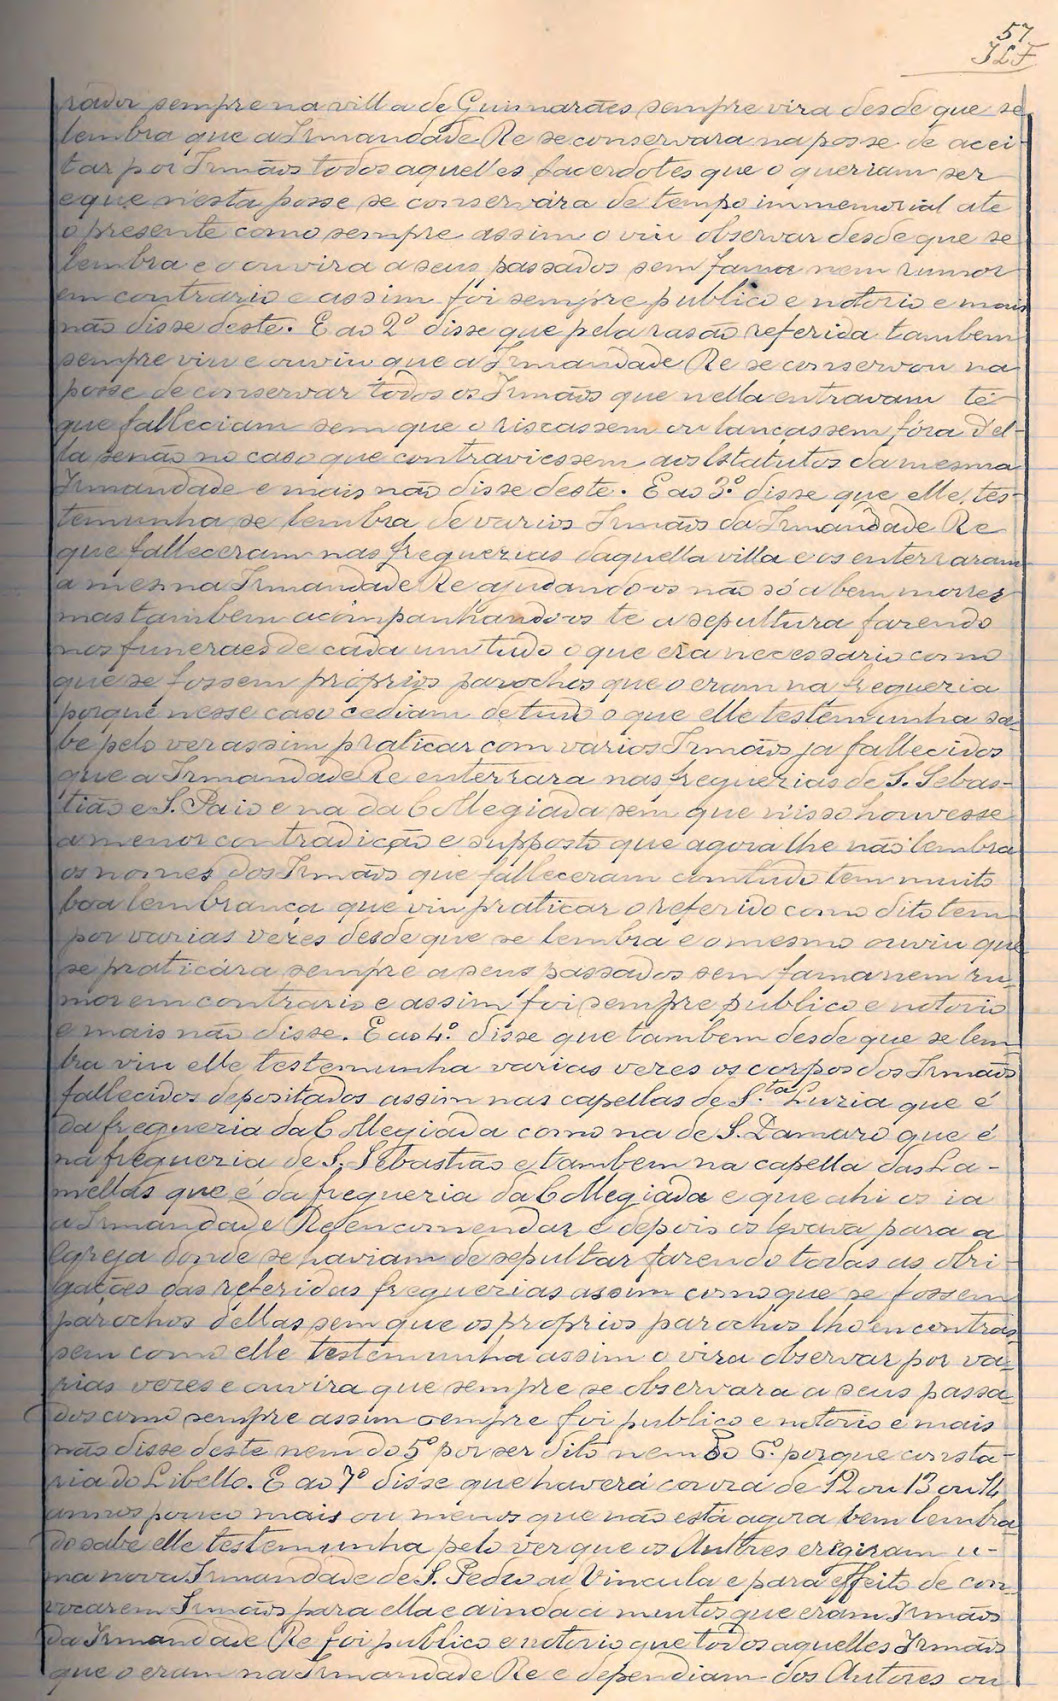 57
JLF
rador sempre na villa de Guimarães sempre vira desde que se
lembra que a Irmandade Re se conservara na posse de acei-
tar por Irmãos todos aquelles sacerdotes que o queriam ser
e que n'esta posse se conservára de tempo immemorial ate
o presente como sempre assim o viu observar desde que se
lembra e o ouvira a seus passados sem fama nem rumor
em contrario e assim foi sempre publico e notorio e mais
não disse deste. E ao 2º disse que pela rasão referida tambem
sempre viu e ouviu que a Irmandade Re se conservou na
posse de conservar todos os Irmãos que nella entravam té
que falleciam sem que o riscassem ou lançassem fóra d'el-
la senão no caso que contraviessem aos Estatutos da mesma
Irmandade e mais não disse deste. E ao 3º disse que elle tes-
temunha se lembra de varios Irmãos da Irmandade Re
que falleceram nas freguezias daquella villa e os enterraram
a mesma Irmandade Re ajudando-os não só a bem morrer
mas tambem acompanhando-os té a sepultura fazendo
nos funeraes de cada um tudo o que era necessario como
que se fossem próprios parochos que o eram na freguezia
porque nesse caso cediam de tudo o que elle testemunha sa-
be pelo ver assim praticar com varios Irmãos ja fallecidos
que a Irmandade Re enterrara nas freguezias de S. Sebas-
tião e S. Paio e na da Collegiada sem que n'isso houvesse
a menor contradicção e supposto que agora lhe não lembra
os nomes dos Irmãos que falleceram comtudo tem muito
boa lembrança que viu praticar o referido como dito tem
por varias vezes desde que se lembra e o mesmo ouviu que
se praticára sempre a seus passados sem fama nem ru-
mor em contrario e assim foi sempre publico e notorio
e mais não disse. E ao 4º disse que tambem desde que se lem
bra viu elle testemunha varias vezes os corpos dos Irmãos
fallecidos depositados assim nas capellas de S.ta Luzia que é
da freguezia da Collegiada como na de S. Damazo que é
na freguezia de S. Sebastião e tambem na capella das La-
mellas que é da freguezia da Collegiada e que ahi os ia
a Irmandade Re encomendar e depois os levava para a
Igreja donde se haviam de sepultar fazendo todas as obri-
gações das referidas freguezias assim como que se fossem
parochos dellas sem que os proprios parochos lho encontras
sem como elle testemunha assim o vira observar por va-
rias vezes e ouvira que sempre se observara a seus passa-
dos como sempre assim sempre foi publico e notorio e mais
não disse deste nem do 5º por ser dito nem do 6º porque consta-
ria do Libello. E ao 7º disse que haverá couza de 12 ou 13 ou 14
annos pouco mais ou menos que não está agora bem lembra
do sabe elle testemunha pelo ver que os Autres erigiram u-
ma nova Irmandade de S. Pedro ad Vincula e para effeito de con
vocarem Irmãos para ella e ainda a muitos que eram Irmãos
da Irmandade Re foi publico e notorio que todos aquelles Irmãos
que o eram na Irmandade Re e dependiam dos Autores ou